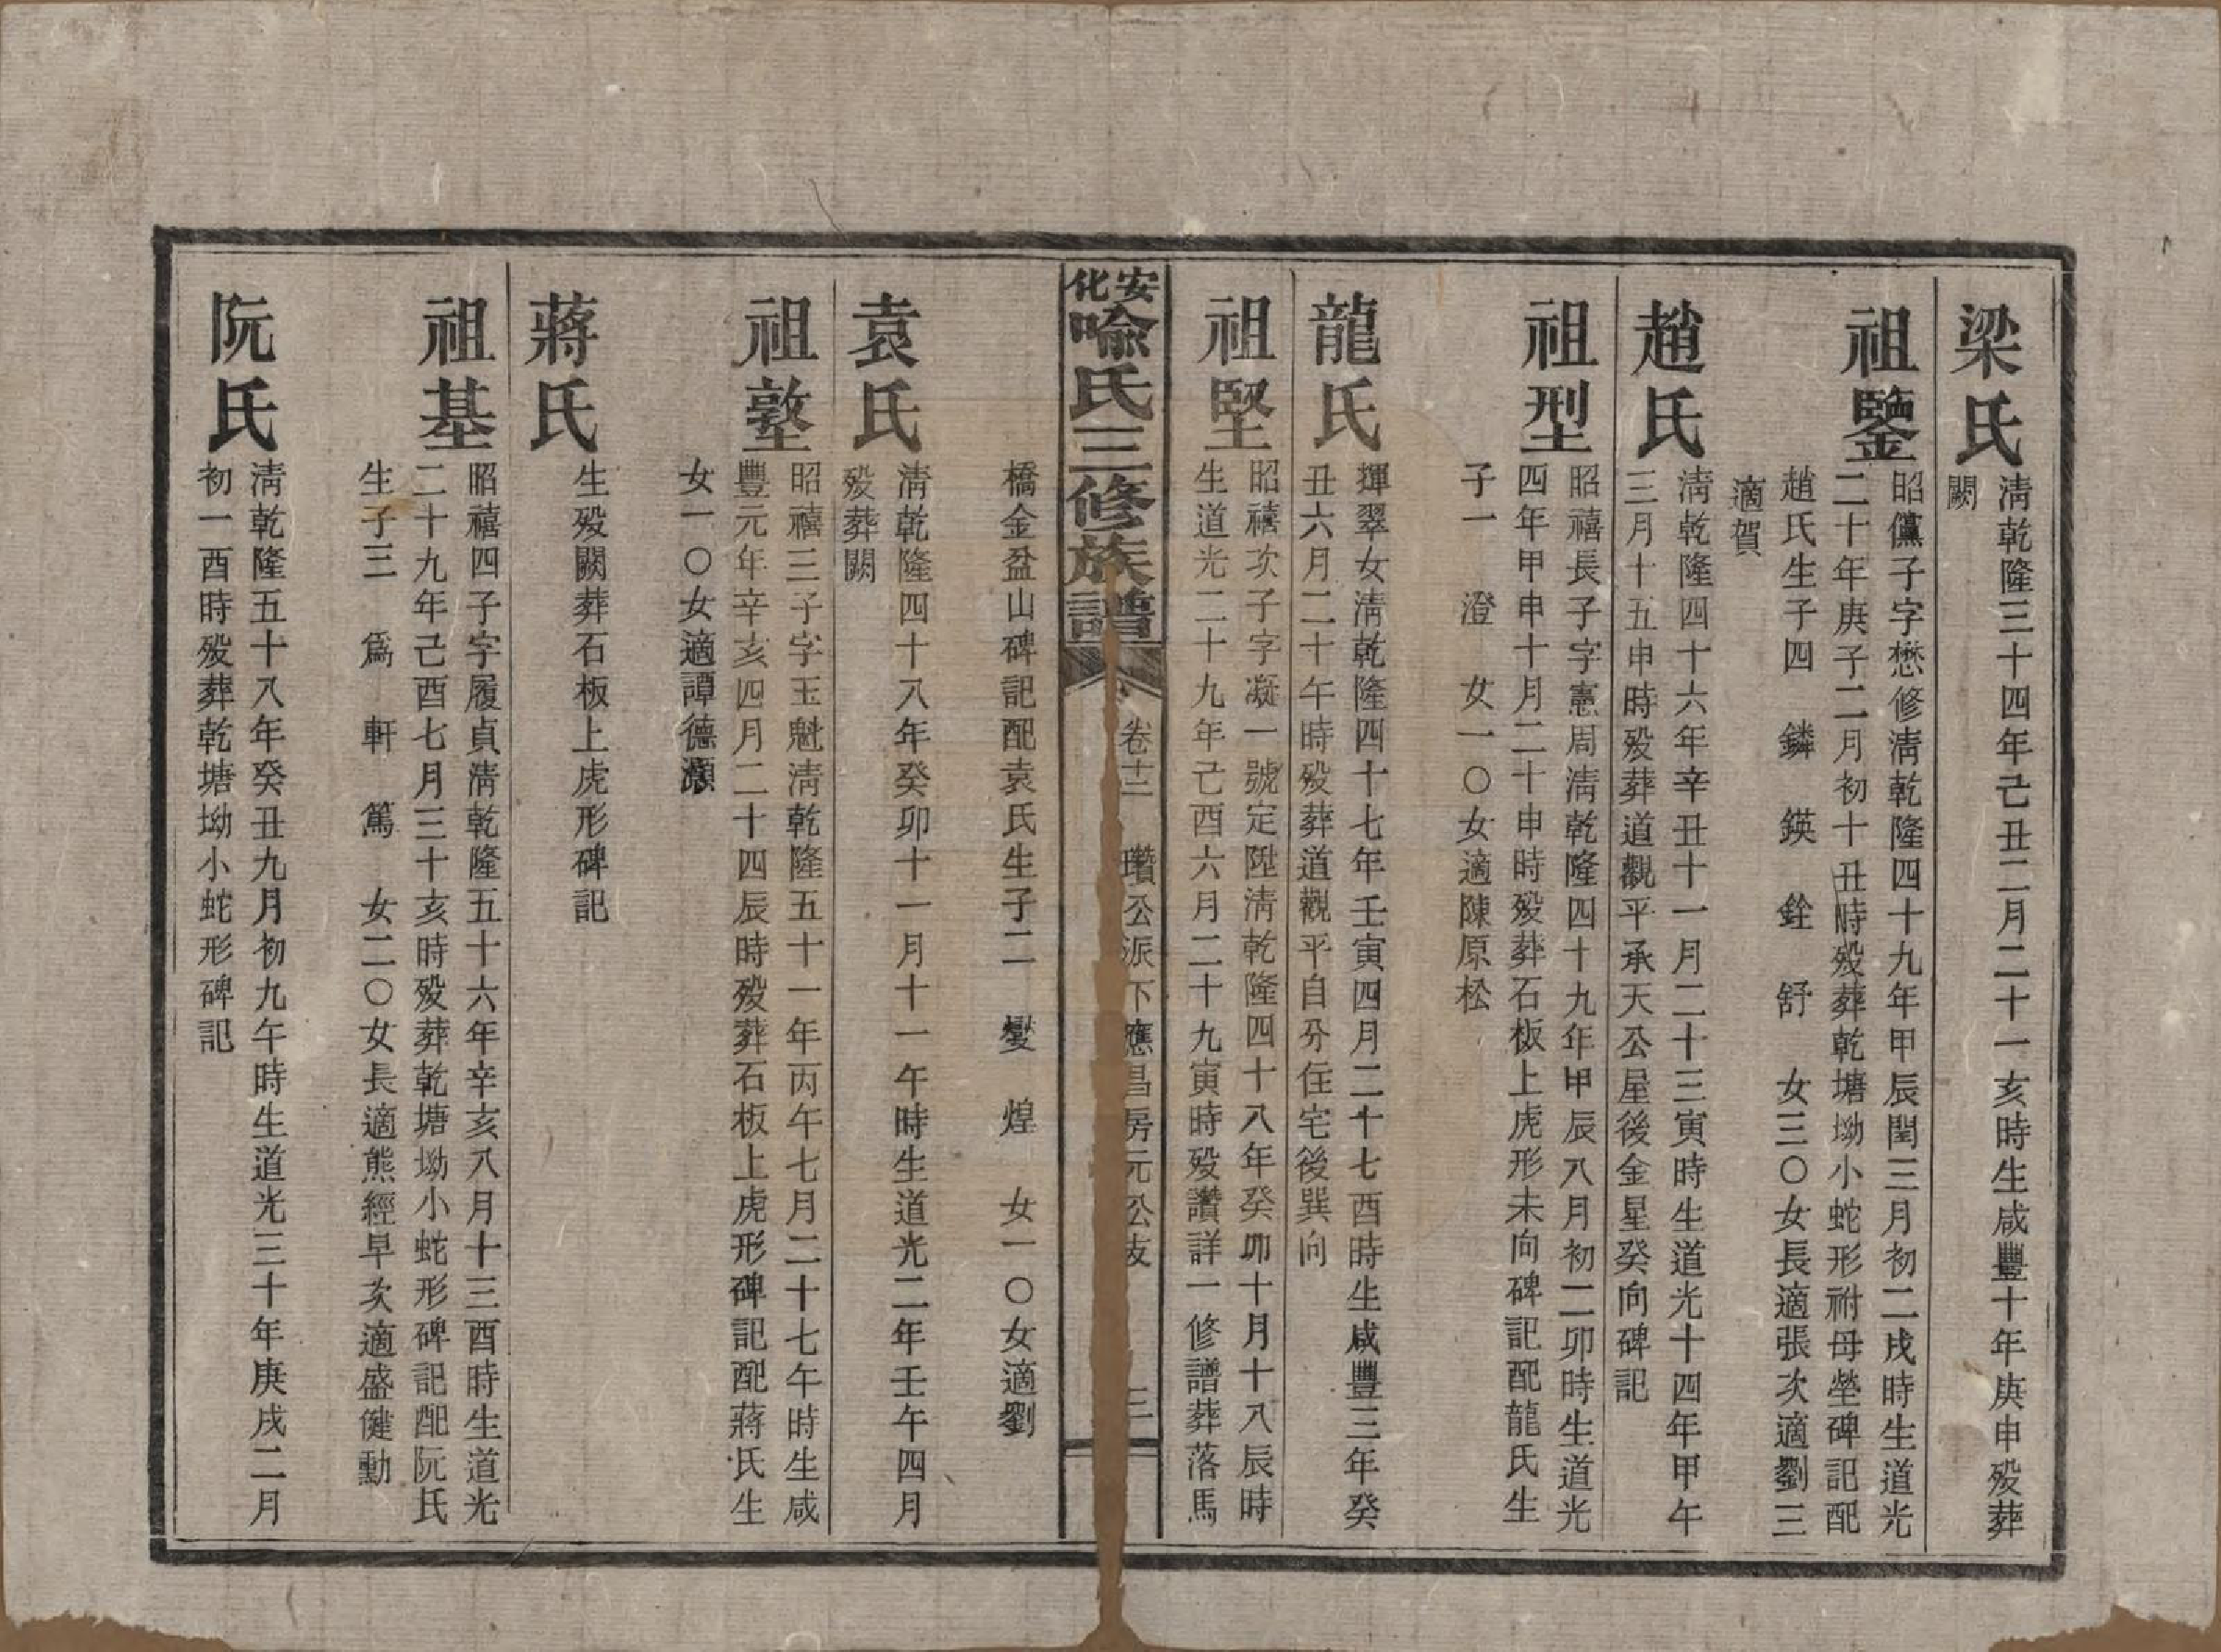 梁氏
清乾隆三十四年己丑二月二十一亥時生咸豐十年庚申歿葬
闕
祖鑒
昭儻子字懋修清乾隆四十九年甲辰閏三月初二戌時生道光
二十年庚子二月初十丑時歿葬乾塘坳小蛇形祔母塋碑記配
趙氏生子四 鏻 鍈 銓 舒 女三〇女長適張次適劉三
適賀
趙氏
清乾隆四十六年辛丑十一月二十三寅時生道光十四年甲午
三月十五申時歿葬道觀平承天公屋後金星癸向碑記
祖型
昭禧長子字憲周清乾隆四十九年甲辰八月初二卯時生道光
四年甲申十月二十申時歿葬石板上虎形未向碑記配龍氏生
子一 澄 女一〇女適陳原松
龍氏
揮翠女清乾隆四十七年壬寅四月二十七酉時生咸豐三年癸
丑六月二十午時歿葬道觀平自分住宅後巽向
祖堅
昭禧次子字凝一號定陞清乾隆四十八年癸卯十月十八辰時
生道光二十九年己酉六月二十九寅時歿讚詳一修譜葬落馬
安化喩氏三修族譜 卷十二 瓚公派下應昌房元公支 三
橋金盆山碑記配袁氏生子二 燮 煌 女一〇女適劉
袁氏
清乾隆四十八年癸卯十一月十一午時生道光二年壬午四月
歿葬闕
祖墪
昭禧三子字玉魁清乾隆五十一年丙午七月二十七午時生咸
豐元年辛亥四月二十四辰時歿葬石板上虎形碑記配蔣氏生
女一〇女適譚德灝
蔣氏
生歿闕葬石板上虎形碑記
祖基
昭禧四子字履貞清乾隆五十六年辛亥八月十三酉時生道光
二十九年己酉七月三十亥時歿葬乾塘坳小蛇形碑記配阮氏
生子三 爲 軒 篤 女二〇女長適熊經早次適盛健勳
阮氏
清乾隆五十八年癸丑九月初九午時生道光三十年庚戌二月
初一酉時歿葬乾塘坳小蛇形碑記